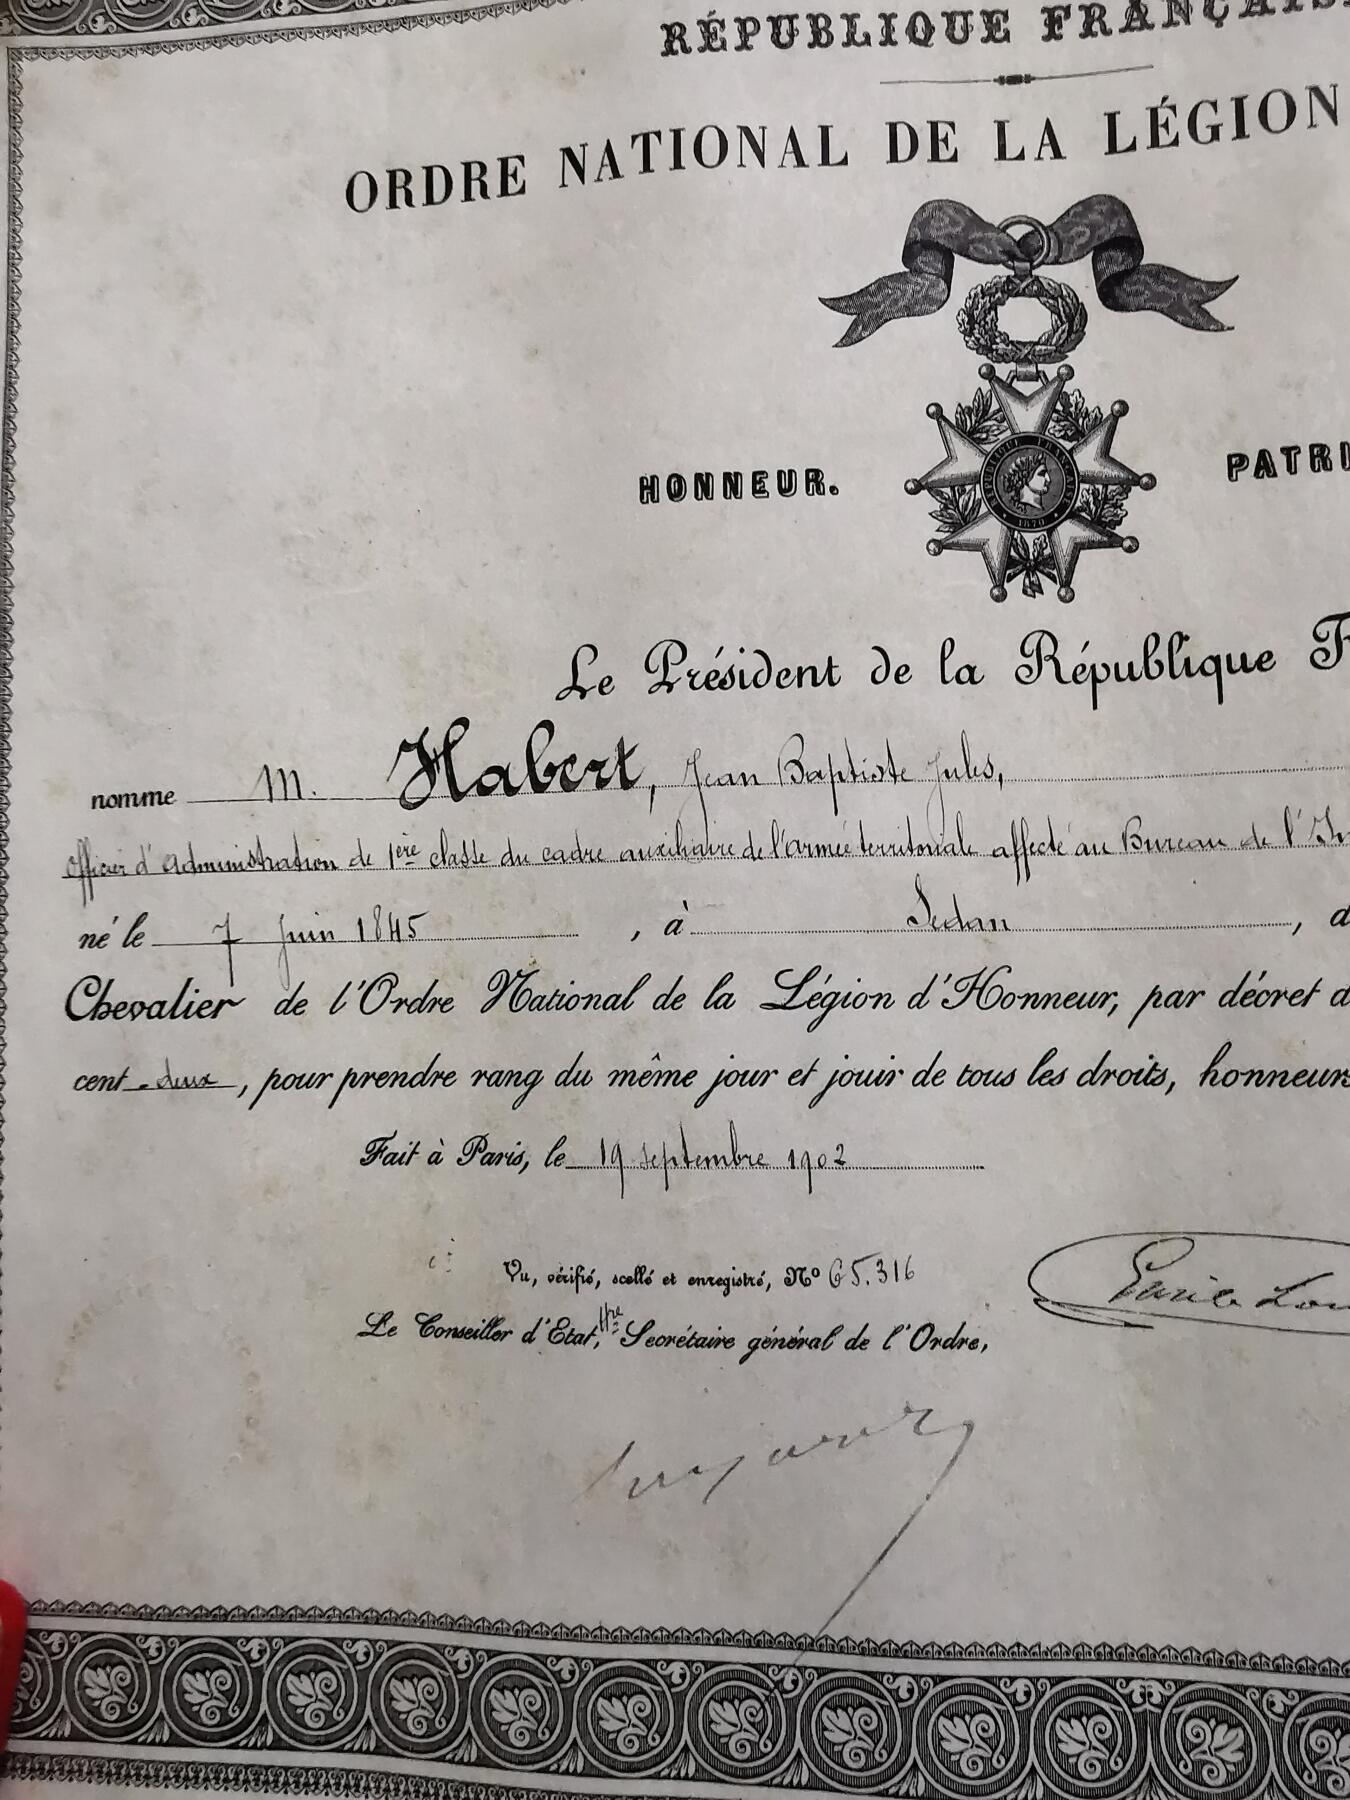 RÉPUBLIQUE FRANÇAIS
ORDRE NATIONAL DE LA LÉGION
HONNEUR. PATRI
RÉPUBLIQUE FRANÇAISE
1870
Le Président de la République F
nomme M. Habert, Jean Baptiste Jules,
officier d'administration de 1ère classe du cadre auxiliaire de l'armée territoriale affecté au Bureau de l'In
né le 7 Juin 1845, à Sedan, d
Chevalier de l'Ordre National de la Légion d'Honneur, par décret d
cent deux, pour prendre rang du même jour et jouir de tous les droits, honneurs
Fait à Paris, le 19 septembre 1902
Vu, vérifié, scellé et enregistré, No 65.316
Emile Lou
Le Conseiller d'Etat, Hre Secrétaire général de l'Ordre,